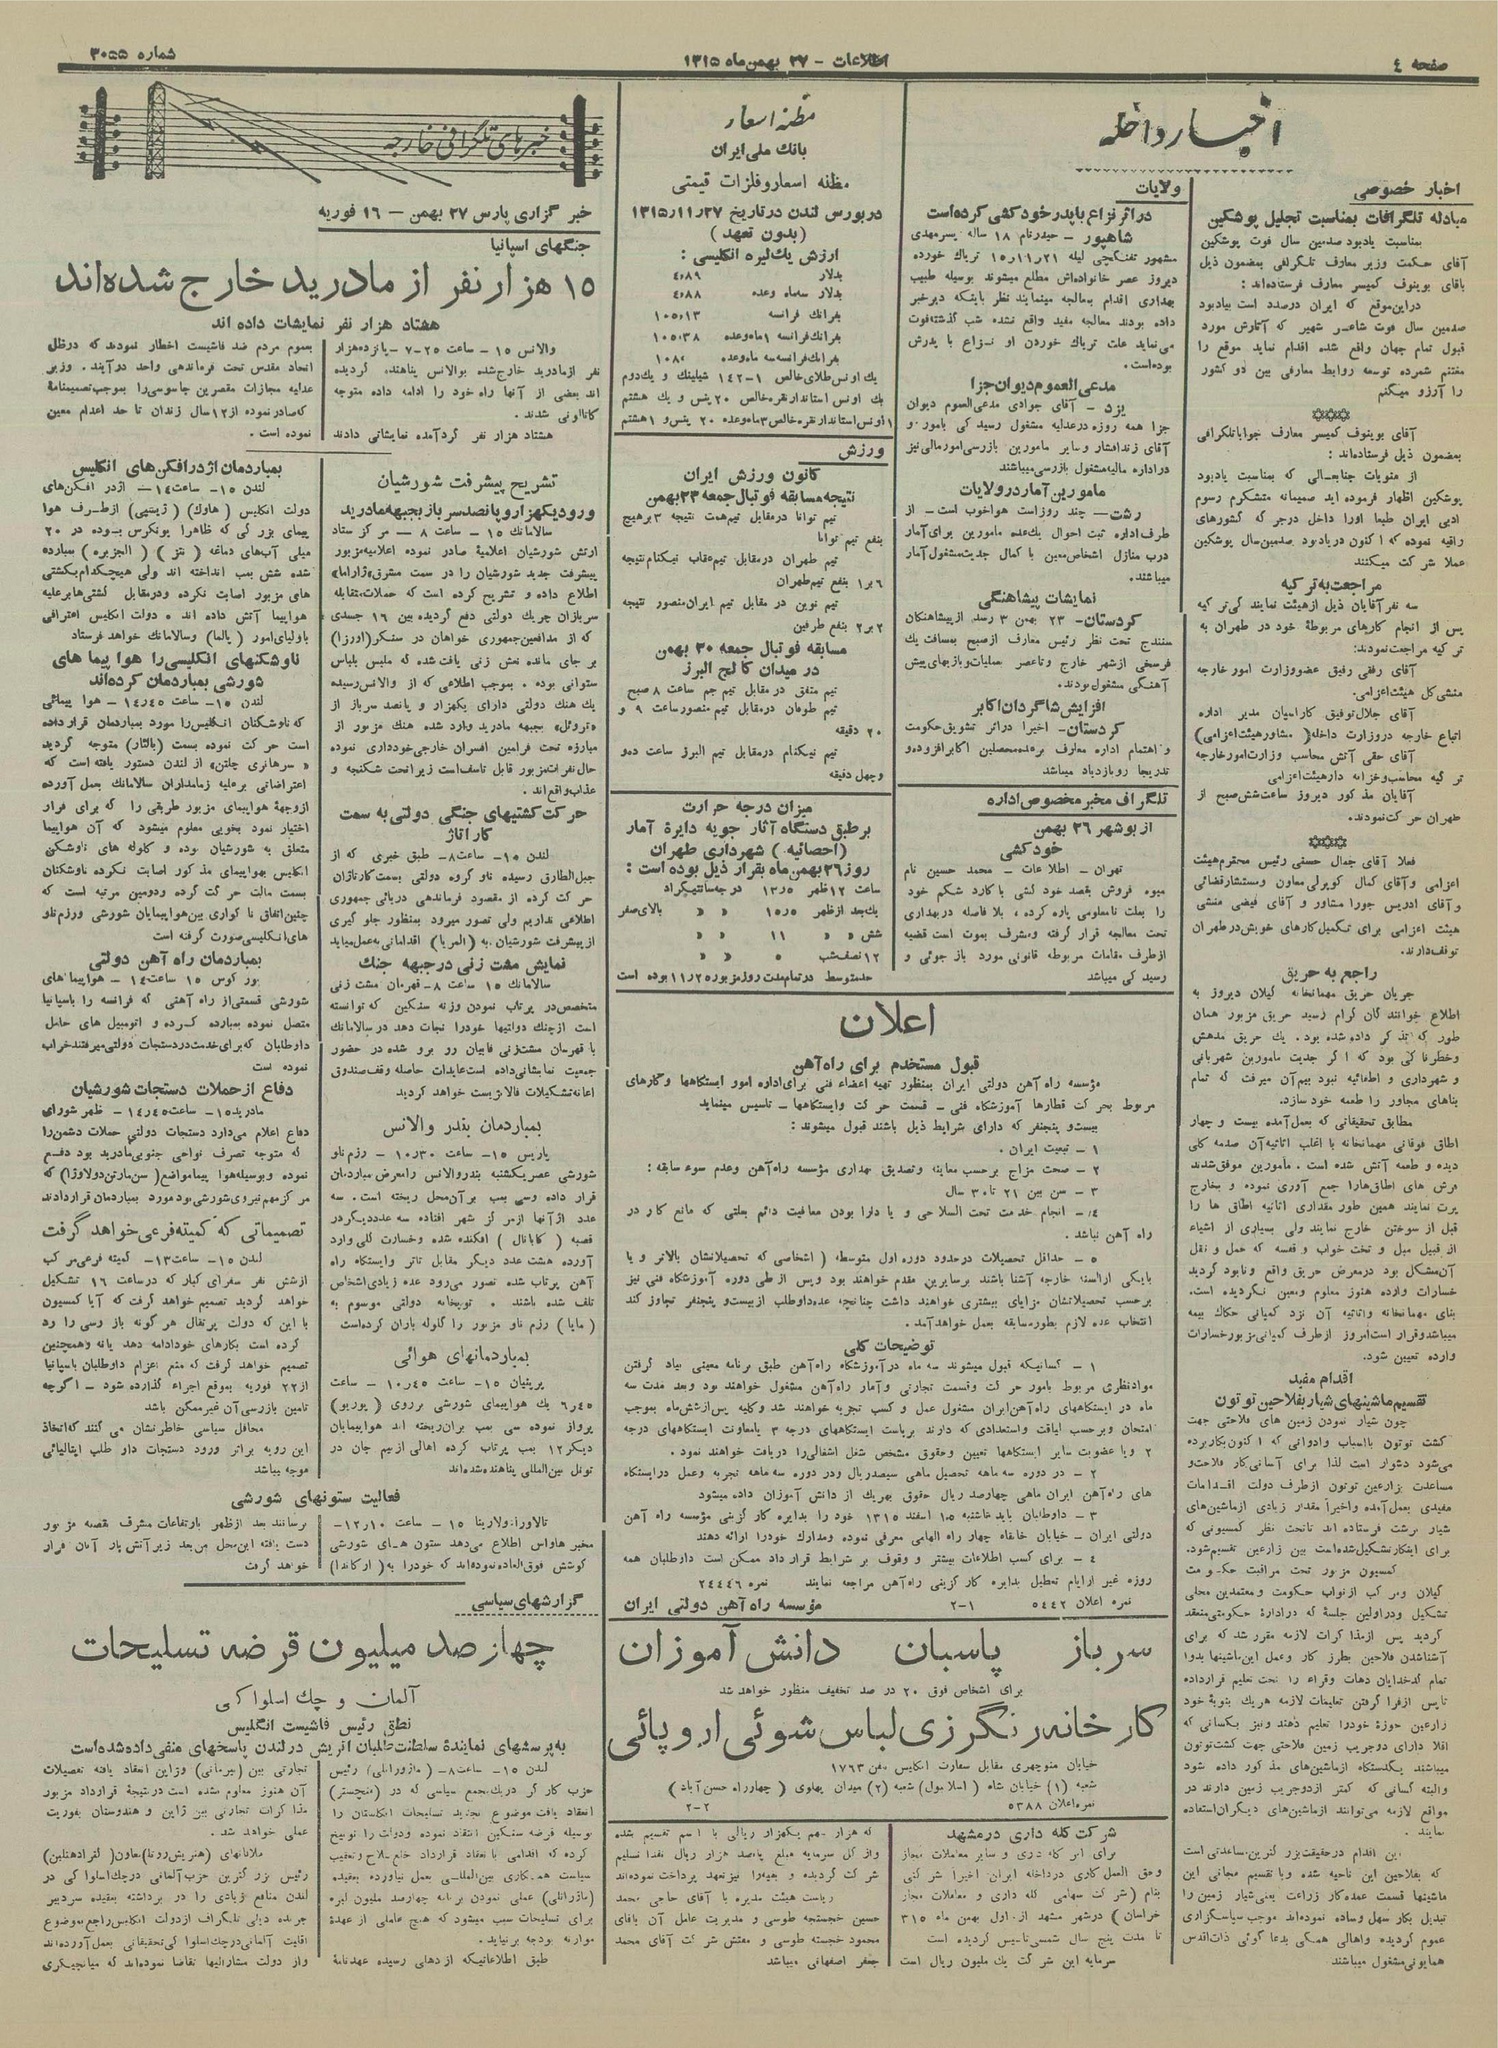 صفحه ٤
اطلاعات - ۲۷ بهمن ماه ۱۳۱۵
شماره ۳۰۵۵
اخبار داخله
اخبار خصوصی
مبادله تلگرافات بمناسبت تجلیل پوشکین
بمناسبت یادبود صدمین سال فوت پوشکین
آقای حکمت وزیر معارف تلگرافی بمضمون ذیل
باقای بوبنوف کمیسر معارف فرستاده‌اند :
دراین‌موقع که ایران درصدد است بیادبود
صدمین سال فوت شاعر شهیر که آثارش مورد
قبول تمام جهان واقع شده اقدام نماید موقع را
مغتنم شمرده توسعه روابط معارفی بین دو کشور
را آرزو میکنم
آقای بوبنوف کمیسر معارف جوابا تلگرافی
بمضمون ذیل فرستاده‌اند :
از منویات جنابعالی که بمناسبت یادبود
پوشکین اظهار فرموده اید صمیمانه متشکرم رسوم
ادبی ایران طبعا اورا داخل درجر که کشورهای
راقیه نموده که اکنون دریادبود صدمین سال پوشکین
عملا شرکت میکنند
مراجعت به ترکیه
سه نفر آقایان ذیل از هیئت نمایندگی ترکیه
پس از انجام کارهای مربوطه خود در طهران به
ترکیه مراجعت نمودند:
آقای رفقی رفیق عضو وزارت امور خارجه
منشی کل هیئت اعزامی.
آقای جلال توفیق کاراسیان مدیر اداره
اتباع خارجه در وزارت داخله( مشاور هیئت اعزامی)
آقای حقی آتش محاسب وزارت امور خارجه
ترکیه محاسب و خزانه دار هیئت اعزامی
آقایان مذکور دیروز ساعت شش صبح از
طهران حرکت نمودند.
فعلا آقای جمال حسنی رئیس محترم هیئت
اعزامی و آقای کمال کوپرلی معاون ومستشار قضائی
و آقای ادریس جورا مشاور و آقای فیضی منشی
هیئت اعزامی برای تکمیل کارهای خویش در طهران
توقف دارند.
راجع به حریق
جریان حریق مهمانخانه گیلان دیروز به
اطلاع خوانندگان گرام رسید حریق مزبور همان
طور که تذکر داده شده بود. یک حریق مدهش
وخطرناکی بود که اگر جدیت مامورین شهربانی
و شهرداری و اطفائیه نبود بیم آن میرفت که تمام
بناهای مجاور را طعمه خود سازد.
مطابق تحقیقاتی که بعمل آمده بیست و چهار
اطاق فوقانی مهمانخانه با اغلب اثاثیه آن صدمه کلی
دیده و طعمه آتش شده است . مأمورین موفق شدند
فرش های اطاق‌هارا جمع آوری نموده و بخارج
پرت نمایند همین طور مقداری اثاثیه اطاق ها را
قبل از سوختن خارج نمایند ولی بسیاری از اشیاء
از قبیل مبل و تخت خواب و قفسه که حمل و نقل
آن مشکل بود در معرض حریق واقع ونابود گردید
خسارات وارده هنوز معلوم ومعین نگردیده است.
بنای مهمانخانه واثاثیه آن نزد کمپانی حکاک بیمه
میباشد وقرار است امروز از طرف کمپانی مزبور خسارات
وارده تعیین شود.
اقدام مفید
تقسیم ماشینهای شیار بفلاحین توتون
چون شیار نمودن زمین های فلاحتی جهت
کشت توتون با اسباب وادواتی که اکنون بکار برده
می‌شود دشوار است لذا برای آسانی کار فلاحت و
مساعدت بزارعین توتون از طرف دولت اقدامات
مفیدی بعمل آمده واخیراً مقدار زیادی از ماشین‌های
شیار برشت فرستاده اند تا تحت نظر کمسیونی که
برای اینکار تشکیل شده است بین زارعین تقسیم شود.
کمسیون مزبور تحت مراقبت حکومت
گیلان ومرکب از نواب حکومت و معتمدین محلی
تشکیل ودر اولین جلسه که در ادارهٔ حکومتی منعقد
گردید پس از مذاکرات لازمه مقرر شد که برای
آشنا شدن فلاحین بطرز کار وعمل این ماشینها بدوا
تمام کدخدایان دهات وقراء را تحت تعلیم قرار داده
تا پس از فرا گرفتن تعلیمات لازمه هر یک بنوبهٔ خود
زارعین حوزهٔ خود را تعلیم دهند ونیز بکسانی که
اقلا دارای دو جریب زمین فلاحتی جهت کشت توتون
میباشند یکدستگاه از ماشین‌های مذکور داده شود
والبته کسانی که کمتر از دو جریب زمین دارند در
مواقع لازمه می‌توانند از ماشین‌های دیگران استفاده
نمایند .
این اقدام در حقیقت بزرگترین مساعدتی است
که بفلاحین این ناحیه شده وبا تقسیم مجانی این
ماشینها قسمت عمده کار زراعت یعنی شیار زمین را
تبدیل بکار سهل وساده نموده‌اند موجب سپاسگزاری
عموم گردیده واهالی همگی بدعاگوئی ذات اقدس
همایونی مشغول میباشند
ولایات
در اثر نزاع با پدر خود کشی کرده است
شاهپور - حیدر نام ۱۸ ساله پسر مهدی
مشهور تفنگچی لیله ۱۵ر۱۱ر۲۱ تریاک خورده
دیروز عصر خانواده‌اش مطلع میشوند بوسیله طبیب
بهداری اقدام بمعالجه مینمایند نظر باینکه دیر خبر
داده بودند معالجه مفید واقع نشده شب گذشته فوت
می‌نماید علت تریاک خوردن او نزاع با پدرش
بوده است.
مدعی العموم دیوان جزا
یزد - آقای جوادی مدعی‌العموم دیوان
جزا همه روزه در عدلیه مشغول رسیدگی بامور و
آقای زند افشار وسایر مامورین بازرسی امور مالی نیز
در اداره مالیه مشغول بازرسی میباشند
مامورین آمار در ولایات
رشت- چند روز است هوا خوب است - از
طرف اداره ثبت احوال یک‌عده مامورین برای آمار
درب منازل اشخاص معین با کمال جدیت مشغول آمار
میباشند.
نمایشات پیشاهنگی
کردستان- ۲۳ بهمن ۳ رسد از پیشاهنگان
سنندج تحت نظر رئیس معارف از صبح بمسافت یک
فرسخی از شهر خارج وتا عصر بعملیات وبازیهای پیش
آهنگی مشغول بودند.
افزایش شاگردان اکابر
کردستان- اخیرا در اثر تشویق حکومت
و اهتمام اداره معارف برعده محصلین اکابر افزوده و
تدریجا رو بازدیاد میباشد
تلگراف مخبر مخصوص اداره
از بوشهر ۲۶ بهمن
خودکشی
تهران - اطلاعات - محمد حسین نام
میوه فروش بقصد خود کشی با کارد شکم خود
را بعلت نامعلومی پاره کرده ، بلا فاصله در بهداری
تحت معالجه قرار گرفته ومشرف بموت است قضیه
از طرف مقامات مربوطه قانونی مورد بازجوئی و
رسیدگی میباشد
مظنه اسعار
بانک ملی ایران
مظنه اسعار و فلزات قیمتی
در بورس لندن در تاریخ ۱۳۱۵ر۱۱ر۲۷
(بدون تعهد)
ارزش یک لیره انگلیسی :
بدلار ۴ر۸۹
بدلار سه‌ماه وعده ۴ر۸۸
بفرانک فرانسه ۱۰۵ر۱۳
بفرانک فرانسه ۱ماه وعده ۱۰۵ر۳۸
بفرانک فرانسه سه ماه وعده
یک اونس طلای خالص ۱-۱۴۲ شیلینگ و یک دوم
یک اونس استاندارد نقره خالص ۲۰ پنس و یک هشتم
۱اونس استاندارد نقره خالص ۳ماه وعده ۲۰ پنس و ۱هشتم
ورزش
کانون ورزش ایران
نتیجه مسابقه فوتبال جمعه ۲۳ بهمن
تیم توانا در مقابل تیم همت نتیجه ۳ بر هیچ
بنفع تیم توانا
تیم طهران در مقابل تیم عقاب نیکنام نتیجه
۶ بر۱ بنفع تیم طهران
تیم نوین در مقابل تیم ایران منصور نتیجه
۲ بر ۲ بنفع طرفین
مسابقه فوتبال جمعه ۳۰ بهمن
در میدان کالج البرز
تیم متفق در مقابل تیم جم ساعت ۸ صبح
تیم طوفان در مقابل تیم منصور ساعت ۹ و
۲۰ دقیقه
تیم نیکنام در مقابل تیم البرز ساعت ده و
چهل دقیقه
میزان درجه حرارت
بر طبق دستگاه آثار جویه دایرهٔ آمار
(احصائیه) شهرداری طهران
روز ۲۶ بهمن ماه بقرار ذیل بوده است :
ساعت ۱۲ ظهر ۱۳ر۵ درجه سانتیگراد
یک بعد از ظهر ۱۵ر۵ « « بالای صفر
شش « « ۱۱ « «
۱۲ نصف شب ۵ « «
حد متوسط در تمام مدت روز مزبور ۱۱ر۲ بوده است
اعلان
قبول مستخدم برای راه‌آهن
مؤسسه راه آهن دولتی ایران بمنظور تهیه اعضاء فنی برای اداره امور ایستگاهها و کارهای
مربوط بحرکت قطارها آموزشگاه فنی - قسمت حرکت وایستگاهها - تاسیس مینماید
بیست و پنجنفر که دارای شرایط ذیل باشند قبول میشوند :
۱ - تبعیت ایران .
۲ - صحت مزاج برحسب معاینه وتصدیق بهداری مؤسسه راه‌آهن وعدم سوء سابقه :
۳ - سن بین ۲۱ تا ۳۰ سال
٤ - انجام خدمت تحت السلاحی و یا دارا بودن معافیت دائم بعلتی که مانع کار در
راه آهن نباشد .
۵ - حداقل تحصیلات در حدود دوره اول متوسطه ( اشخاصی که تحصیلاتشان بالاتر و یا
بایکی از السنه خارجه آشنا باشند بر سایرین مقدم خواهند بود وپس از طی دوره آموزشگاه فنی نیز
برحسب تحصیلاتشان مزایای بیشتری خواهند داشت چنانچه عده داوطلب از بیست و پنجنفر تجاوز کند
انتخاب عده لازم بطور مسابقه بعمل خواهد آمد.
توضیحات کلی
۱ - کسانیکه قبول میشوند سه ماه در آموزشگاه راه‌آهن طبق برنامه معینی بیاد گرفتن
مواد نظری مربوط بامور حرکت وقسمت تجارتی وآمار راه‌آهن مشغول خواهند بود وبعد مدت سه
ماه در ایستگاههای راه‌آهن ایران مشغول عمل و کسب تجربه خواهند شد وکلیه پس از شش ماه بموجب
امتحان وبرحسب لیاقت واستعدادی که دارند بریاست ایستگاههای درجه ۳ یا معاونت ایستگاههای درجه
۲ ویا عضویت سایر ایستگاهها تعیین وحقوق مشخص شغل اشغالی را دریافت خواهند نمود .
۲ - در دوره سه ماهه تحصیل ماهی سیصد ریال ودر دوره سه ماهه تجربه وعمل در ایستگاه
های راه‌آهن ایران ماهی چهارصد ریال حقوق بهریک از دانش آموزان داده میشود
۳ - داوطلبان باید تا شنبه ۱۵ اسفند ۱۳۱۵ خود را بدایره کارگزینی مؤسسه راه آهن
دولتی ایران - خیابان خانقاه چهار راه الهامی معرفی نموده ومدارک خود را ارائه دهند
٤ - برای کسب اطلاعات بیشتر و وقوف بر شرایط قرار داد ممکن است داوطلبان همه
روزه غیر از ایام تعطیل بدایره کارگزینی راه‌آهن مراجعه نمایند نمره ۲۴۴۴۶
نمره اعلان ۵۴۴۲ ۲-۱ مؤسسه راه آهن دولتی ایران
سرباز پاسبان دانش آموزان
برای اشخاص فوق ۲۰ در صد تخفیف منظور خواهد شد
کارخانه رنگرزی لباس شوئی اروپائی
خیابان منوچهری مقابل سفارت انگلیس تلفن ۱۷۶۳
شعبه (۱) خیابان شاه (اسلامبول) شعبه (۲) میدان پهلوی (چهارراه حسن آباد)
نمره اعلان ۵۳۸۸ ۲-۲
شرکت گله داری در مشهد
برای گله داری و سایر معاملات مجاز
وحق العمل کاری در داخله ایران اخیرا شرکتی
بنام (شرکت سهامی گله داری و معاملات مجاز
خراسان) در شهر مشهد از اول بهمن ماه ۳۱۵
تا مدت پنج سال شمسی تاسیس گردیده است
سرمایه این شرکت یک ملیون ریال است
که هزار سهم یکهزار ریالی با اسم تقسیم شده
و از کل سرمایه مبلغ پانصد هزار ریال نقدا تسلیم
شرکت گردیده و بقیه را نیز تعهد پرداخت نموده‌اند
ریاست هیئت مدیره با آقای حاجی محمد
حسین خجسته طوسی و مدیریت عامل آن باقای
محمود خجسته طوسی و مفتش شرکت آقای محمد
جعفر اصفهانی میباشد
خبرهای تلگرافی خارجه
خبرگزاری پارس ۲۷ بهمن - ۱۶ فوریه
جنگهای اسپانیا
۱۵ هزار نفر از مادرید خارج شده‌اند
هشتاد هزار نفر نمایشات داده اند
والانس ۱۵ - ساعت ۲۵-۷ - پانزده هزار
نفر از مادرید خارج شده بوالانس پناهنده گردیده
اند بعضی از آنها راه خود را ادامه داده متوجه
کاتالونی شدند .
هشتاد هزار نفر گرد آمده نمایشاتی دادند
بعموم مردم ضد فاشیست اخطار نمودند که در ظل
اتحاد مقدس تحت فرماندهی واحد در آیند. وزیر
عدلیه مجازات مقصرین جاسوسی را بموجب تصمیمنامهٔ
که صادر نموده از۱۲ سال زندان تا حد اعدام معین
نموده است .
تشریح پیشرفت شورشیان
ورود یکهزار و پانصد سرباز بجبهه مادرید
سالامانک ۱۵ - ساعت ۸ - مرکز ستاد
ارتش شورشیان اعلامیهٔ صادر نموده اعلامیه مزبور
پیشرفت جدید شورشیان را در سمت مشرق «ژاراما»
اطلاع داده و تشریح کرده است که حملات متقابله
سربازان چریک دولتی دفع گردیده بین ۱۶ جسدی
که از مدافعین جمهوری خواهان در سنگر (اوزرا)
بر جای مانده نعش زنی یافت شده که ملبس بلباس
ستوانی بوده . بموجب اطلاعی که از والانس رسیده
یک هنگ دولتی دارای یکهزار و پانصد سرباز از
«تروئل» بجبهه مادرید وارد شده هنگ مزبور از
مبارزه تحت فرامین افسران خارجی خودداری نموده
حال نفرات مزبور قابل تاسف است زیرا تحت شکنجه و
عذاب واقع‌اند .
حرکت کشتیهای جنگی دولتی به سمت
کارتاژ
لندن ۱۵- ساعت ۸- طبق خبری که از
جبل‌الطارق رسیده ناو گروه دولتی بسمت کارتاژن
حرکت کرده از مقصود فرماندهی دریائی جمهوری
اطلاعی نداریم ولی تصور میرود بمنظور جلوگیری
از پیشرفت شورشیان به (المریا) اقداماتی بعمل میاید
نمایش مشت زنی در جبهه جنگ
سالامانک ۱۵ ساعت ۸- قهرمان مشت زنی
متخصص در پرتاب نمودن وزنه سنگین که توانسته
است از چنگ دولتیها خود را نجات دهد در سالامانک
با قهرمان مشت‌زنی فابیان رو برو شده در حضور
جمعیت نمایشاتی داده است عایدات حاصله وقف صندوق
اعانه تشکیلات فالانژیست خواهد گردید
بمباردمان بندر والانس
پاریس ۱۵- ساعت ۳۰ر۱۰ - رزم ناو
شورشی عصر یکشنبه بندر والانس را معرض بمباردمان
قرار داده وسی بمب بر آن محل ریخته است . سه
عدد از آنها از مرکز شهر افتاده سه عدد دیگر در
قصبه (کابانال) افکنده شده وخسارت کلی وارد
آورده هشت عدد دیگر مقابل تاتر وایستگاه راه
آهن پرتاب شده تصور می‌رود عده زیادی اشخاص
تلف شده باشند . توپخانه دولتی موسوم به
(مایا) رزم ناو مزبور را گلوله باران کرده است
بمباردمانهای هوائی
پرپنیان ۱۵- ساعت ۴۵ر۱۰ - ساعت
۴۵ر۶ یک هواپیمای شورشی بر روی (پوربو)
پرواز نموده سی بمب بر آن ریخته اند هواپیمایان
دیگر ۱۲ بمب پرتاب کرده اهالی از بیم جان در
تونل بین‌المللی پناهنده شده‌اند
بمباردمان اژدر افکن های انگلیس
لندن ۱۵- ساعت ۱۴- اژدر افکن‌های
دولت انگلیس (هاوک) (ژیپسی) از طرف هوا
پیمای بزرگی که ظاهرا یونکرس بوده در ۲۰
میلی آب‌های دماغه (تنز) (الجزیره) بمبارده
شده شش بمب انداخته اند ولی هیچکدام بکشتی
های مزبور اصابت نکرده و در مقابل کشتی‌ها بر علیه
هواپیما آتش داده اند . دولت انگلیس اعتراضی
باولیای امور (پالما) وسالامانک خواهد فرستاد
ناوشکنهای انگلیسی را هوا پیما های
شورشی بمباردمان کرده‌اند
لندن ۱۵- ساعت ۴۵ر۱۴- هوا پیمائی
که ناوشکنان انگلیس را مورد بمباردمان قرار داده
است حرکت نموده بسمت (بالئار) متوجه گردید
« سرهانری چلتن» از لندن دستور یافته است که
اعتراضاتی بر علیه زمامداران سالامانک بعمل آورده
از وجههٔ هواپیمای مزبور طریقی را که برای فرار
اختیار نمود بخوبی معلوم میشود که آن هواپیما
متعلق به شورشیان بوده و گلوله های ناوشکن
انگلیس بهواپیمای مذکور اصابت نکرده ناوشکنان
بسمت مالت حرکت کرده ودومین مرتبه است که
چنین اتفاق ناگواری بین هواپیمایان شورشی و رزم ناو
های انگلیسی صورت گرفته است
بمباردمان راه آهن دولتی
بورگوس ۱۵ ساعت ۱۴ - هواپیماهای
شورشی قسمتی از راه آهنی که فرانسه را باسپانیا
متصل نموده بمبارده کرده و اتومبیل های حامل
داوطلبان که برای خدمت در دستجات دولتی میرفتند خراب
نموده است
دفاع از حملات دستجات شورشیان
مادرید ۱۵ - ساعت ۴۵ر۱۴ - ظهر شورای
دفاع اعلام می‌دارد دستجات دولتی حملات دشمن را
که متوجه تصرف نواحی جنوبی مادرید بود دفع
نموده وبوسیله هوا پیما مواضع (سن مارتن دولاوژا) که
مرکز مهم نیروی شورشی بود مورد بمباردمان قرار دادند
تصمیماتی که کمیته فرعی خواهد گرفت
لندن ۱۵- ساعت ۱۳- کمیته فرعی مرکب
از شش نفر سفرای کبار که در ساعت ۱۶ تشکیل
خواهد گردید تصمیم خواهد گرفت که آیا کمسیون
با این که دولت پرتقال هر گونه باز رسی را رد
کرده است بکارهای خود ادامه دهد یانه وهمچنین
تصمیم خواهد گرفت که منع اعزام داوطلبان باسپانیا
از۲۲ فوریه بموقع اجراء گذارده شود - اگرچه
تامین بازرسی آن غیر ممکن باشد
محافل سیاسی خاطر نشان می کنند که اتخاذ
این رویه بر اثر ورود دستجات داوطلب ایتالیائی
موجه میباشد
فعالیت ستونهای شورشی
تالاورا دولارینا ۱۵ - ساعت ۱۰ر۱۲-
مخبر هاواس اطلاع می‌دهد ستون های شورشی
کوشش فوق‌العاده نموده‌اند که خود را به (ارگاندا)
برسانند بعد از ظهر بارتفاعات مشرف بقصبه مزبور
دست یافته این محل من‌بعد زیر آتش بار آنان قرار
خواهد گرفت
گزارشهای سیاسی
چهارصد میلیون قرضه تسلیحات
آلمان و چک اسلواکی
نطق رئیس فاشیست انگلیس
به پرسشهای نمایندهٔ سلطنت‌طلبان اتریش در لندن پاسخهای منفی داده شده است
لندن ۱۵ - ساعت ۸- (ماژور اتلی) رئیس
حزب کارگر در یک مجمع سیاسی که در (منچستر)
انعقاد یافت موضوع تجدید تسلیحات انگلستان را
بوسیله قرضه سنگین انتقاد نموده ودولت را توبیخ
کرده که اقدامی بانعقاد قرارداد خلع سلاح وتعقیب
سیاست همکاری بین‌المللی بعمل نیاورده بعقیده
(ماژور اتلی) عملی نمودن برنامه چهارصد ملیون لیره
برای تسلیحات سبب میشود که هیچ عاملی از عهدهٔ
موازنه بودجه برنیاید.
طبق اطلاعاتیکه از دهلی رسیده عهدنامهٔ
تجارتی بین (بیرمانی) وژاپن انعقاد یافته تفصیلات
آن هنوز معلوم نشده است در نتیجهٔ قرارداد مزبور
مذاکرات تجارتی بین ژاپن و هندوستان بفوریت
عملی خواهد شد .
ملاقاتهای (هنریش روتا) معاون (کنراد هنلین)
رئیس بزرگترین حزب آلمانی در چک اسلواکی در
لندن منافع زیادی را در برداشته بعقیده سردبیر
جریده دیلی تلگراف از دولت انگلیس راجع بموضوع
اقلیت آلمانی در چک اسلواکی تحقیقاتی بعمل آورده‌اند
واز دولت مشارالیها تقاضا نموده‌اند که میانجیگری